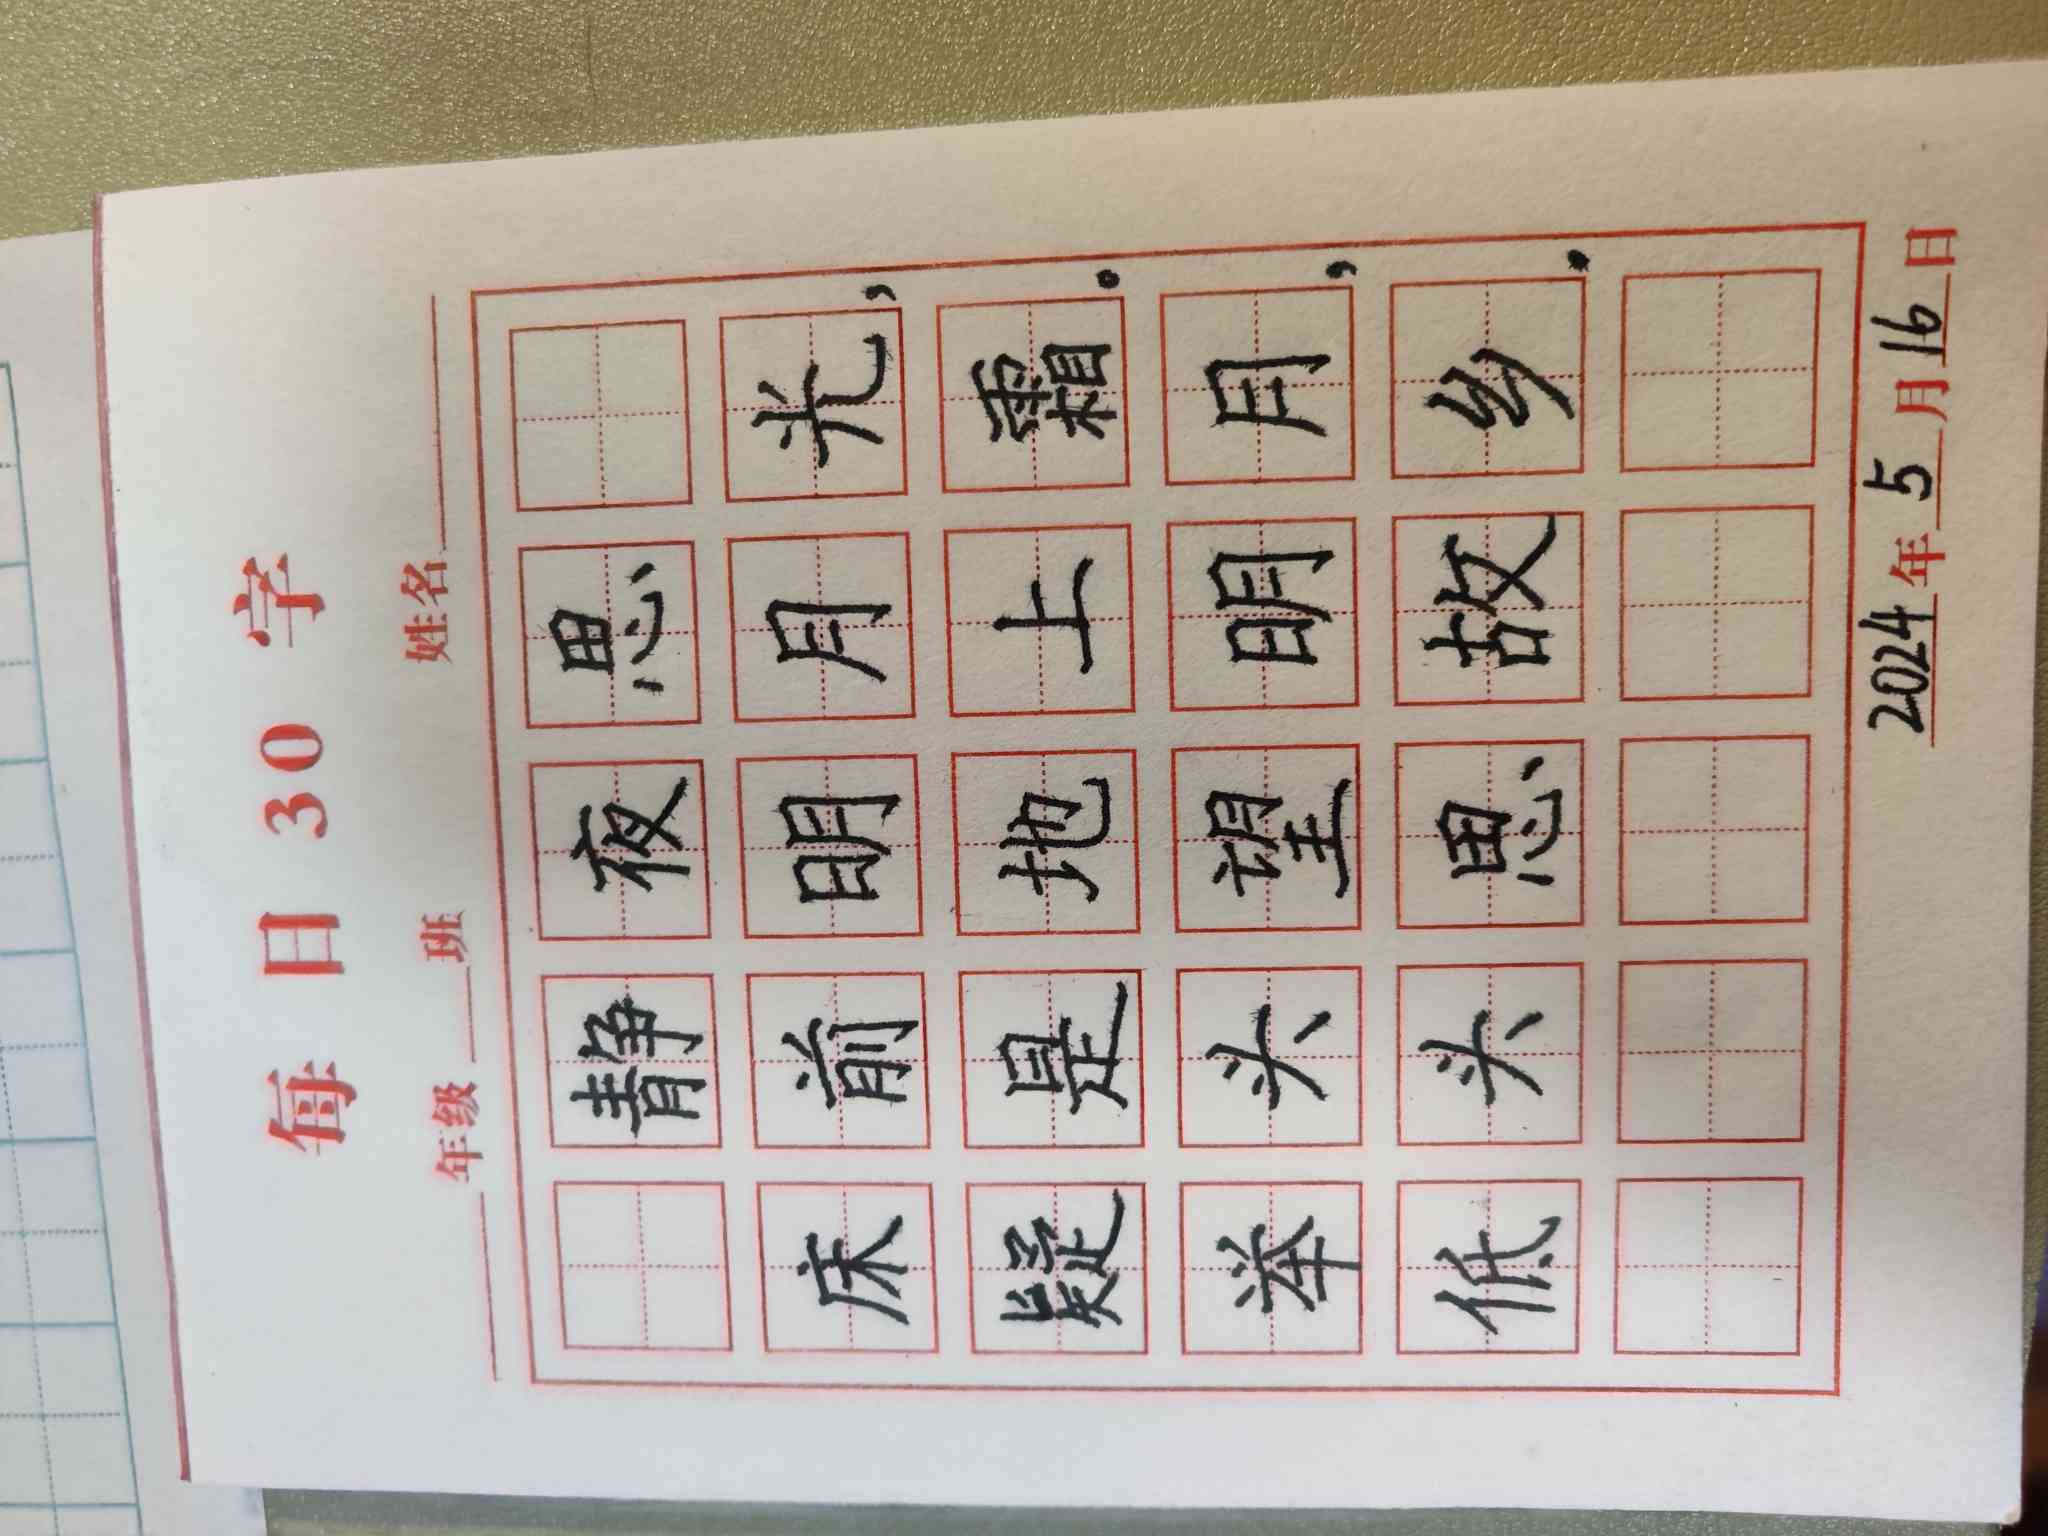 每日30字
年级 班 姓名
静夜思
床前明月光，
疑是地上霜。
举头望明月，
低头思故乡.
2024年5月16日